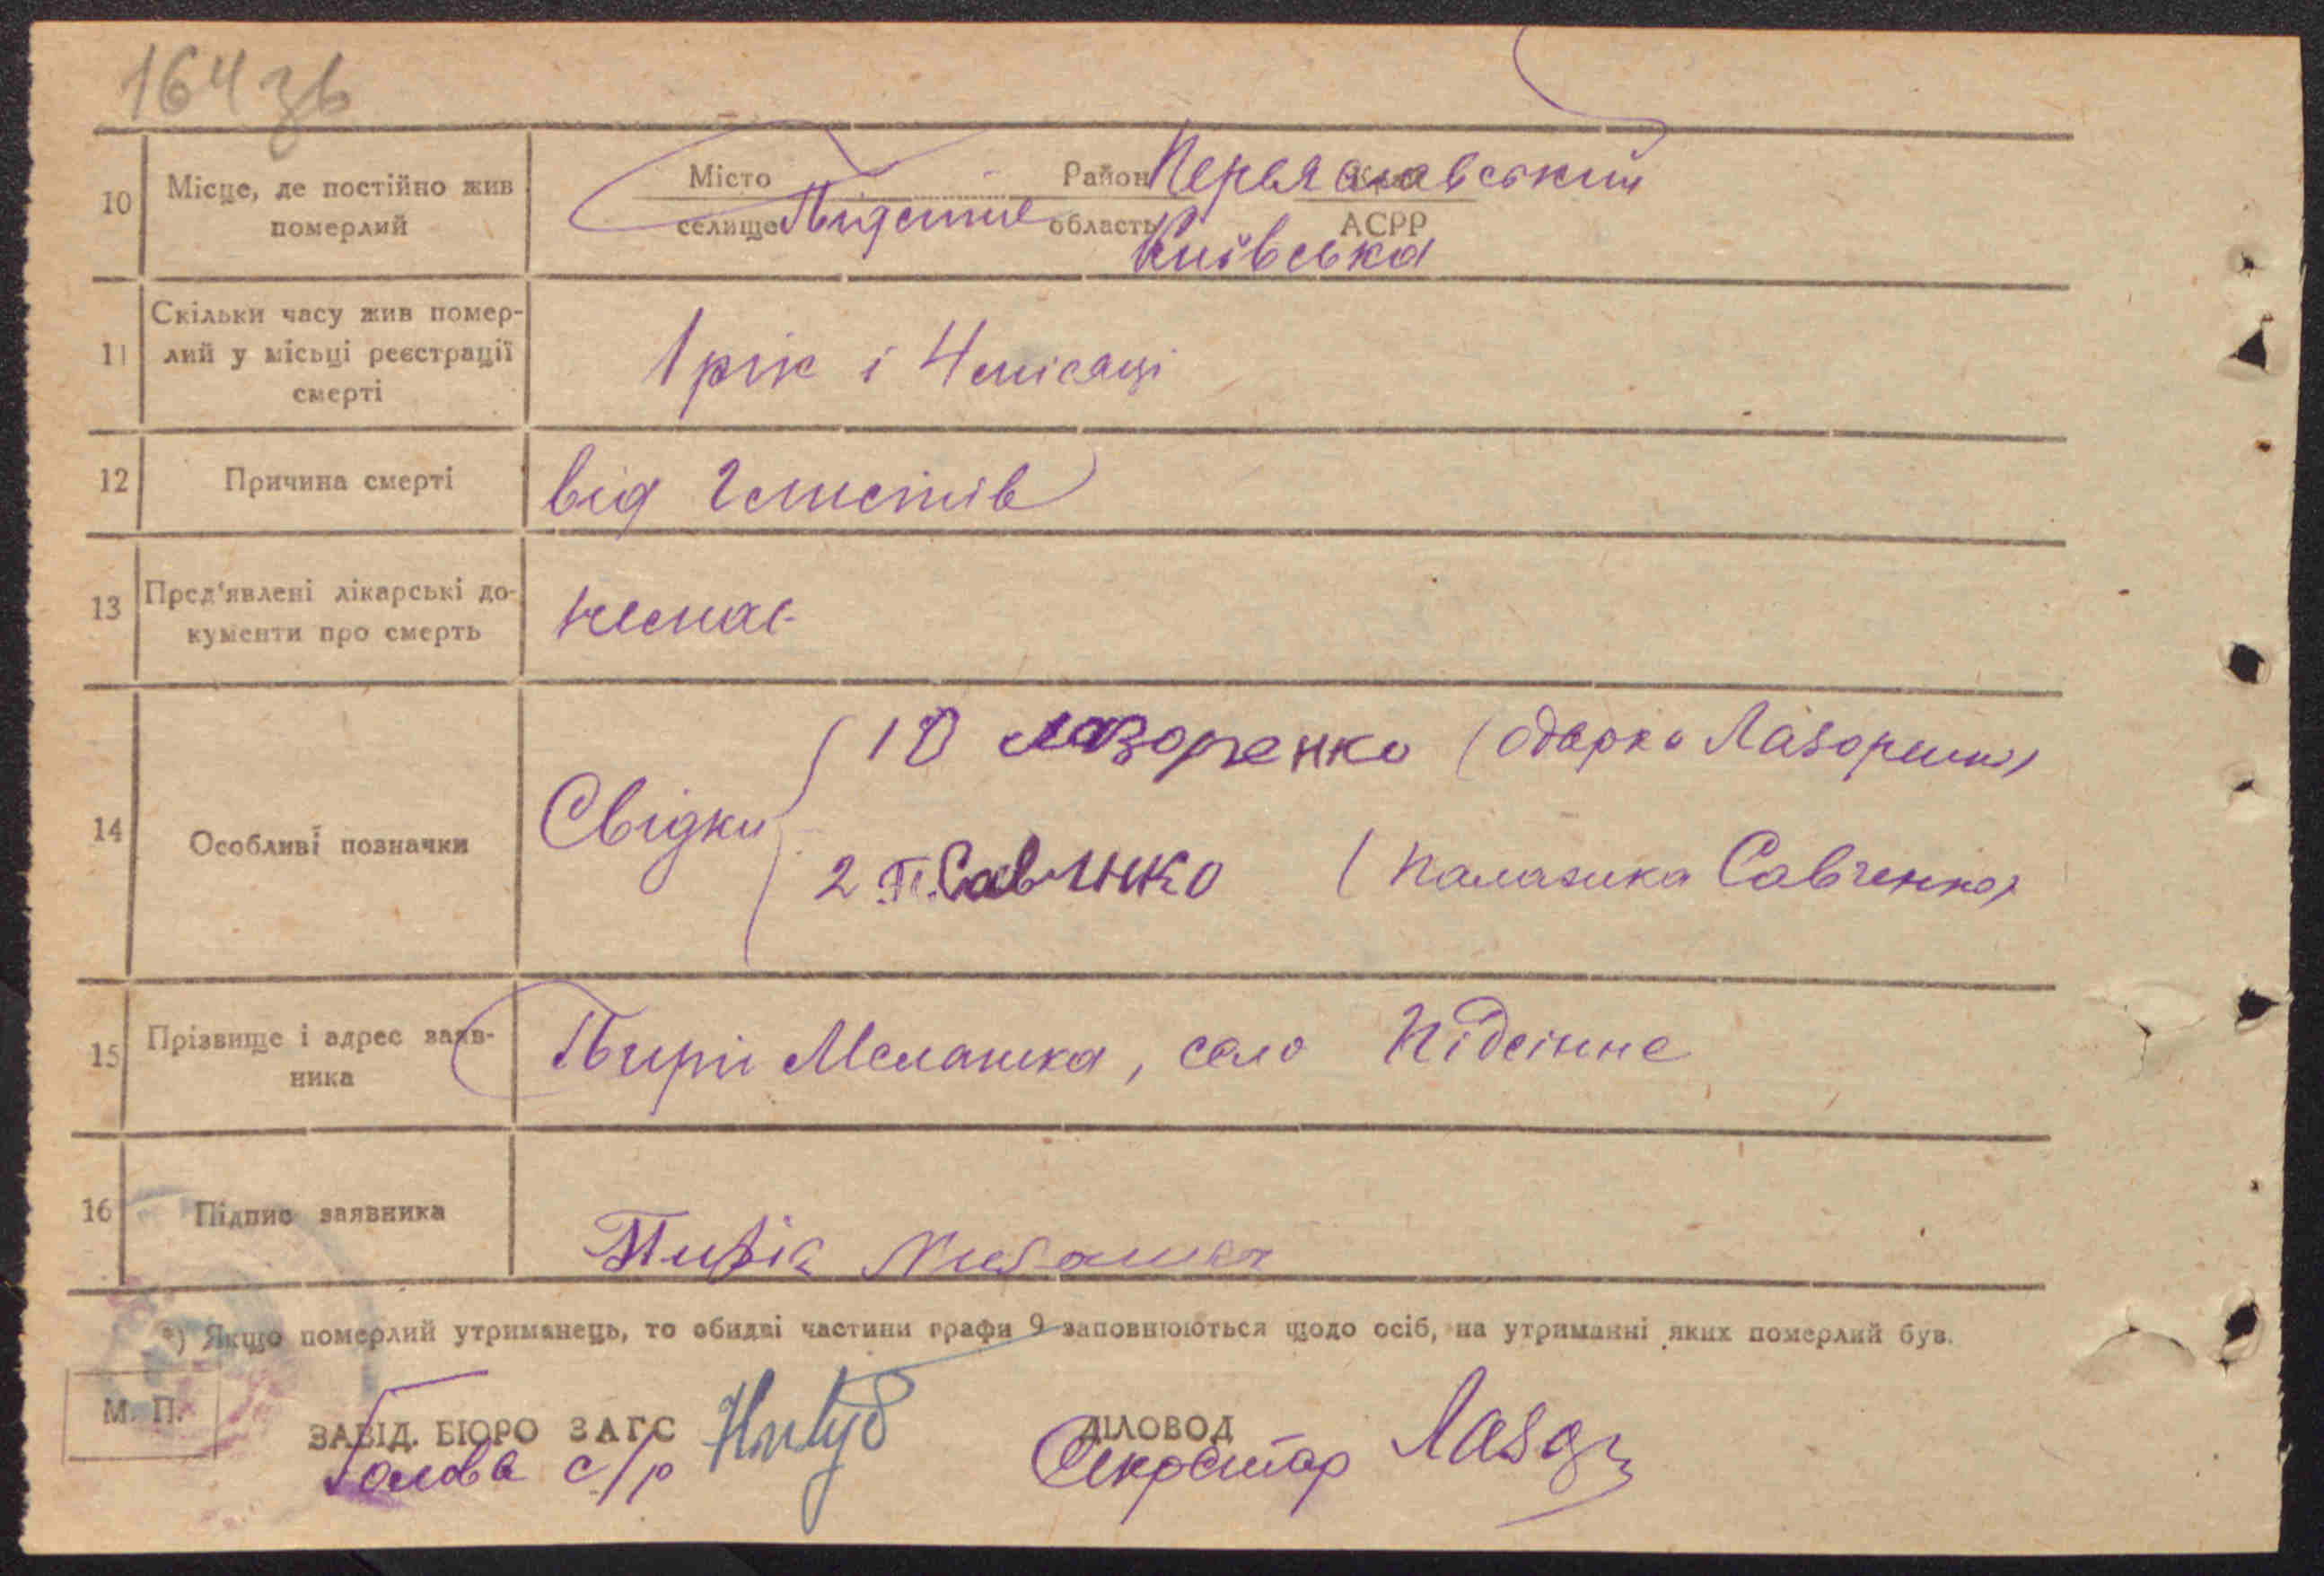 164 зв
10 Місце, де постійно жив померлий
Місто Район Переяславський
селище Підсінне область АСРР
Київська
11 Скільки часу жив помер-
лий у місьці реєстрації
смерті
1 рік і 4 місяці
12 Причина смерті
від глистів
13 Пред'явлені лікарські до-
кументи про смерть
немає
14 Особливі позначки
Свідки
1 О Лазоренко (Одарка Лазоренко)
2 П. Савченко (Палажка Савченко)
15 Прізвище і адрес заяв-
ника
Пирій Мелашка, село Підсінне
16 Підпис заявника
Мелашка
*) Якщо померлий утриманець, то обидві частини графи 9 заповнюються щодо осіб, на утриманні яких померлий був.
М. П.
ЗАВІД. БЮРО ЗАГС
Голова с/р
ДІЛОВОД
Секретар Лазор